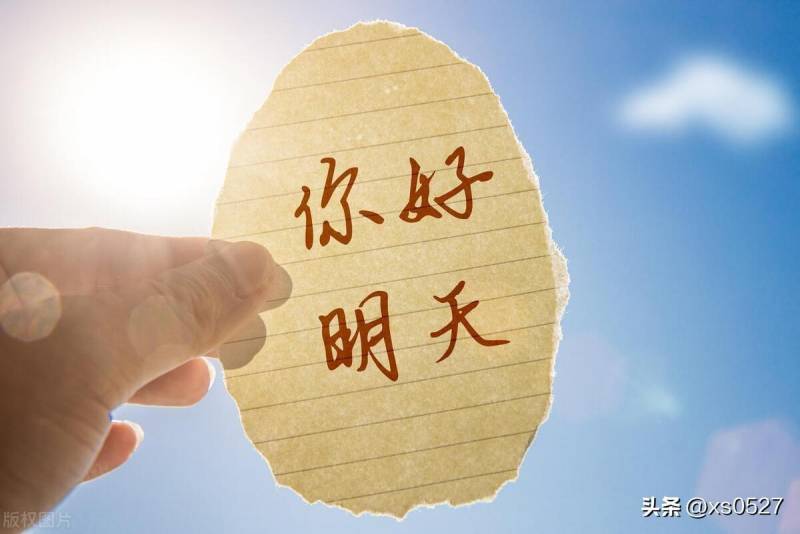 你好
明天
头条 @xs0527
版权图片